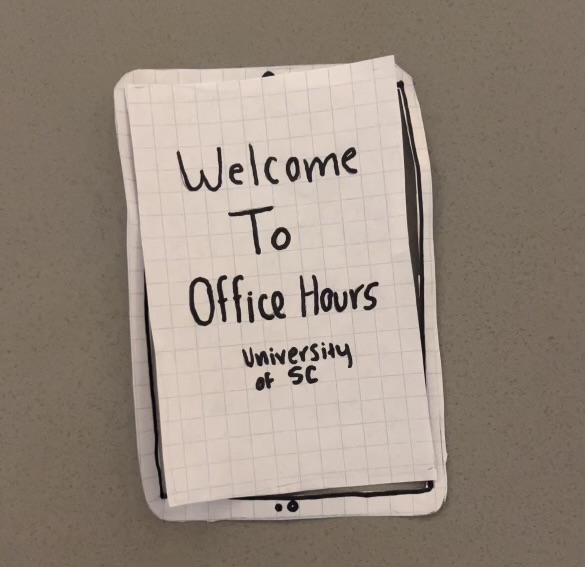 Welcome
To
Office Hours
University
of SC